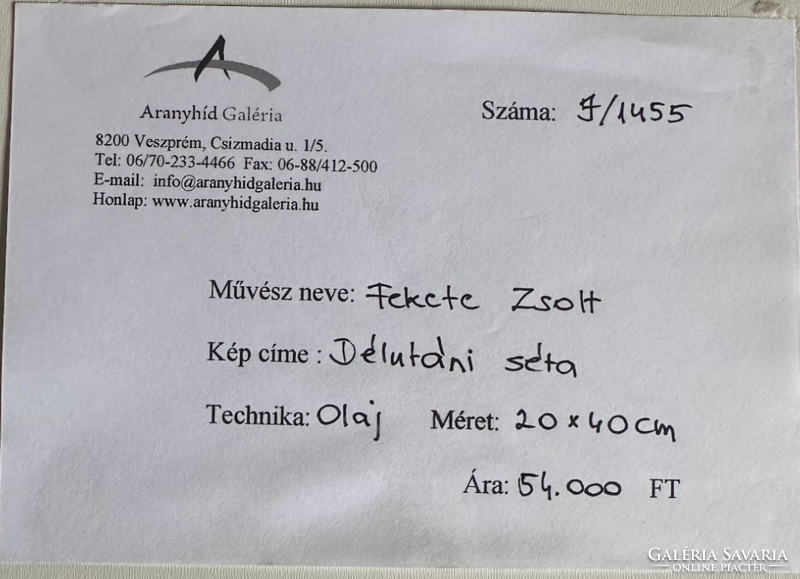 Aranyhíd Galéria
Száma: F/1455
8200 Veszprém, Csizmadia u. 1/5.
Tel: 06/70-233-4466 Fax: 06-88/412-500
E-mail: info@aranyhidgaleria.hu
Honlap: www.aranyhidgaleria.hu
Művész neve: Fekete Zsolt
Kép címe : Délutáni séta
Technika: Olaj Méret: 20 x 40 cm
Ára: 54.000 FT
GALÉRIA SAVARIA
ONLINE PIACTÉR